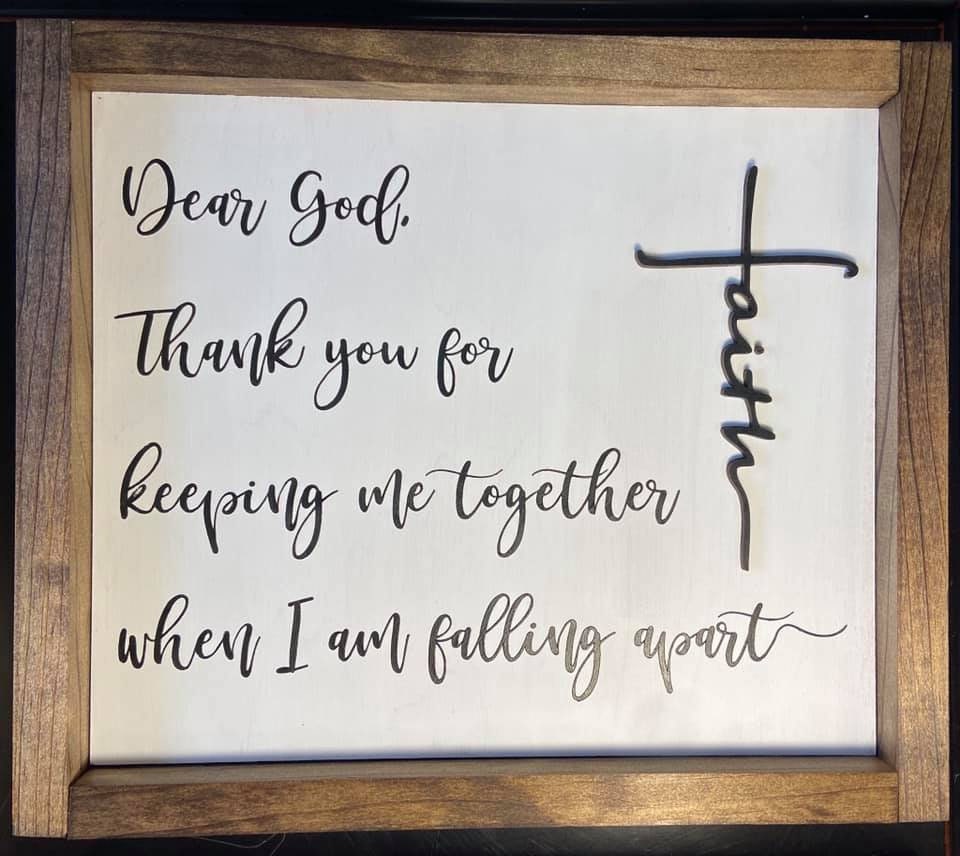 Dear God,
Thank you for
keeping me together
when I am falling apart
faith